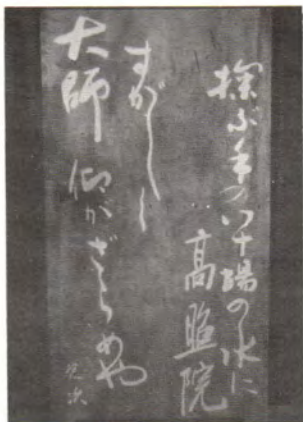 掬ぶ手の八十場の水に
高照院
すがしし
大師 仰がざらめや